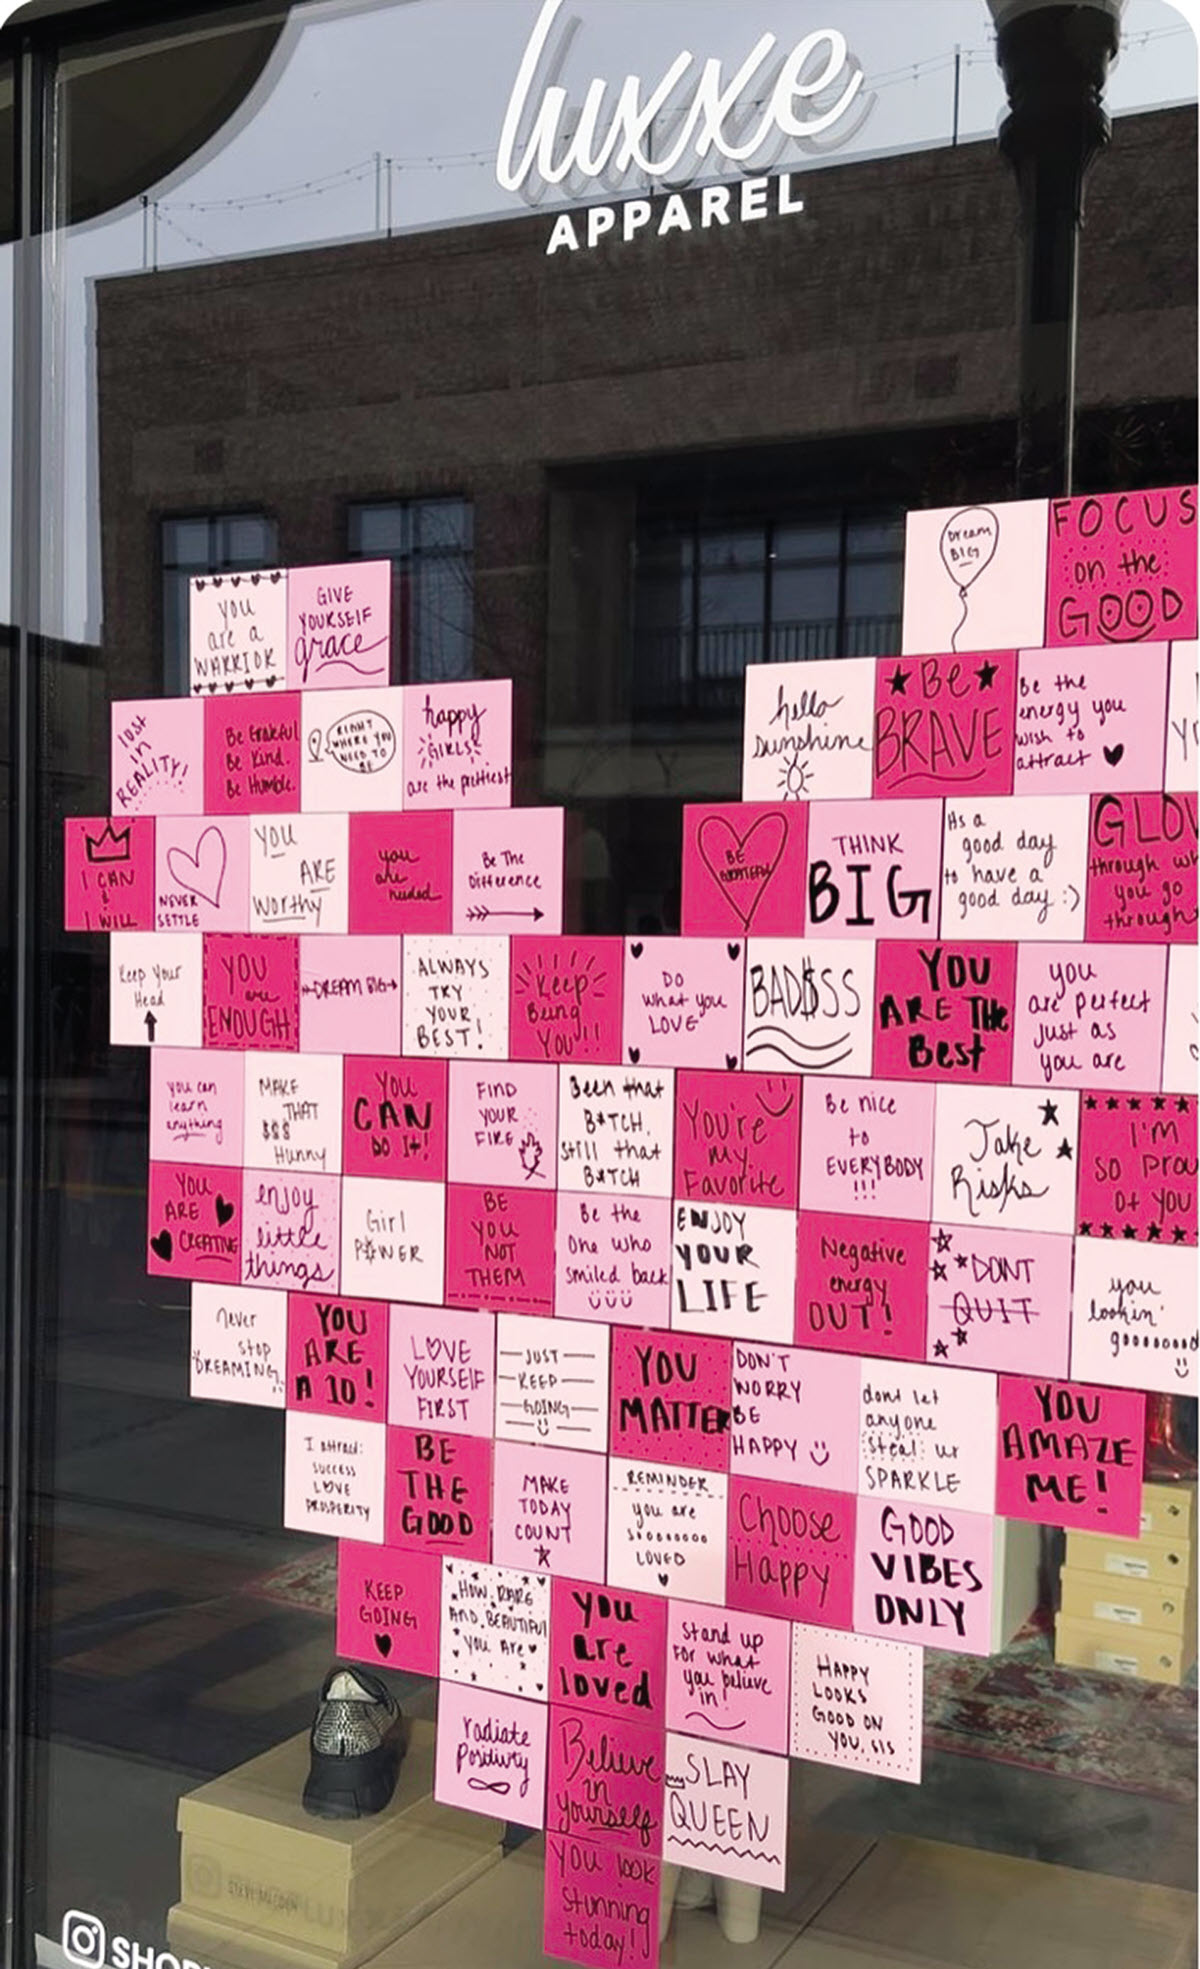 luxxe
APPAREL
Dream
BIG
FOCUS
on the
GOOD
you
are a
WARRIOR
GIVE
YOURSELF
grace
hello
sunshine
Be
BRAVE
Be the
energy you
wish to
attract
lost
in
REALITY!
Be Grateful
Be Kind.
Be Humble.
RIGHT
WHERE YOU
NEED TO
BE
happy
GIRLS
are the prettiest
I CAN
&
I WILL
NEVER
SETTLE
YOU
ARE
Worthy
you
are
needed
Be The
Difference
BE
GRATEFUL
THINK
BIG
Its a
good day
to have a
good day :)
GLOW
through wh
you go
through
Keep Your
Head
YOU
are
ENOUGH
DREAM BIG
ALWAYS
TRY
YOUR
BEST!
Keep
Being
YOU!!!
DO
what you
LOVE
BAD$SS
YOU
ARE THE
Best
you
are perfect
just as
you are
you can
learn
anything
MAKE
THAT
$$$
Hunny
YOU
CAN
DO It!
FIND
YOUR
FIRE
Been that
B*TCH,
still that
B*TCH
You're
my
Favorite
Be nice
to
EVERYBODY
!!!
Take
Risks
I'M
SO PROU
Of YOU
YOU
ARE
CREATIVE
enjoy
little
things
Girl
POWER
BE
YOU
NOT
THEM
Be the
One who
smiled back
ENJOY
YOUR
LIFE
Negative
energy
OUT!
DONT
QUIT
you
lookin'
goooooooo
Never
stop
DREAMING
YOU
ARE
A 10!
LOVE
YOURSELF
FIRST
JUST
KEEP
GOING
YOU
MATTER
DON'T
WORRY
BE
HAPPY
dont let
anyone
steal ur
SPARKLE
YOU
AMAZE
ME!
I attract:
SUCCESS
LOVE
PROSPERITY
BE
THE
GOOD
MAKE
TODAY
COUNT
REMINDER
you are
soooooooo
LOVED
Choose
Happy
GOOD
VIBES
ONLY
KEEP
GOING
HOW RARE
AND BEAUTIFUL
you Are
you
are
loved
Stand up
FOR what
you believe
in!
HAPPY
LOOKS
GOOD ON
YOU, SIS
radiate
Positivity
Believe
in
yourself
SLAY
QUEEN
You look
stunning
today!
STEVE MADDEN
SHOP